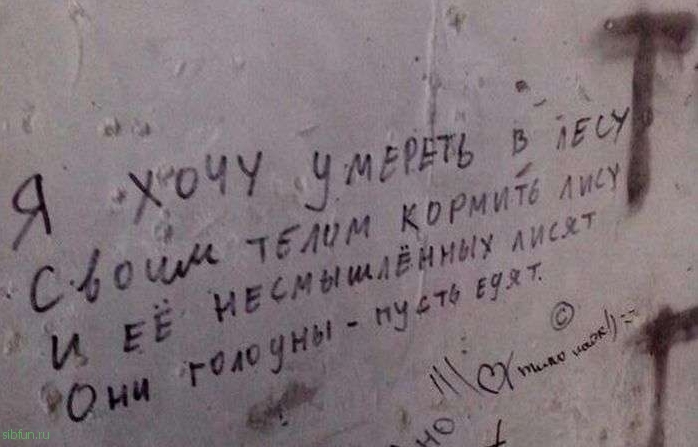 Я ХОЧУ УМЕРЕТЬ В ЛЕСУ
СВОИМ ТЕЛОМ КОРМИТЬ ЛИСУ
И ЕЁ НЕСМЫШЛЁННЫХ ЛИСЯТ
ОНИ ГОЛОДНЫ - ПУСТЬ ЕДЯТ.
©
sibfun.ru